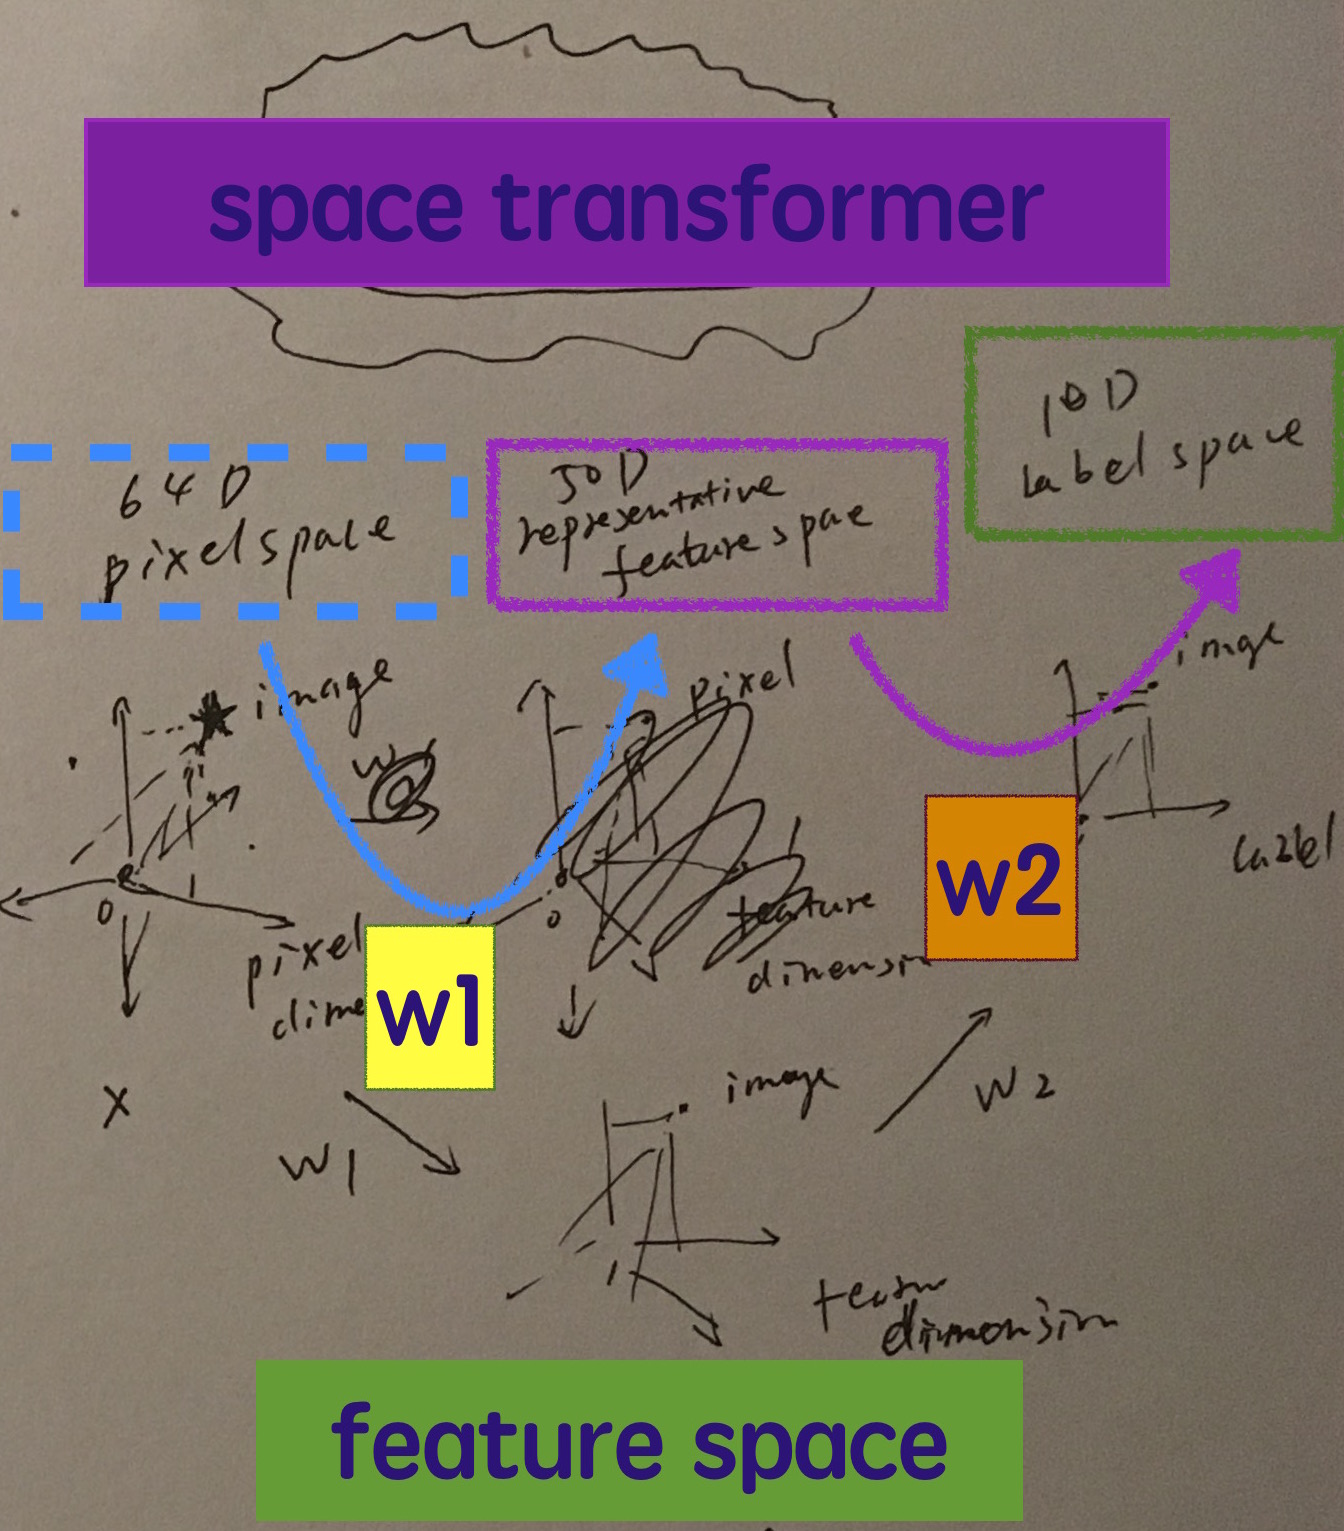 space transformer
64D
pixel space
50D
representative
feature spae
10D
label space
image
pixel
image
W
0
0
pixel
dime
feature
dimension
label
w1
w2
X
W1
image
W2
dimension
feature space